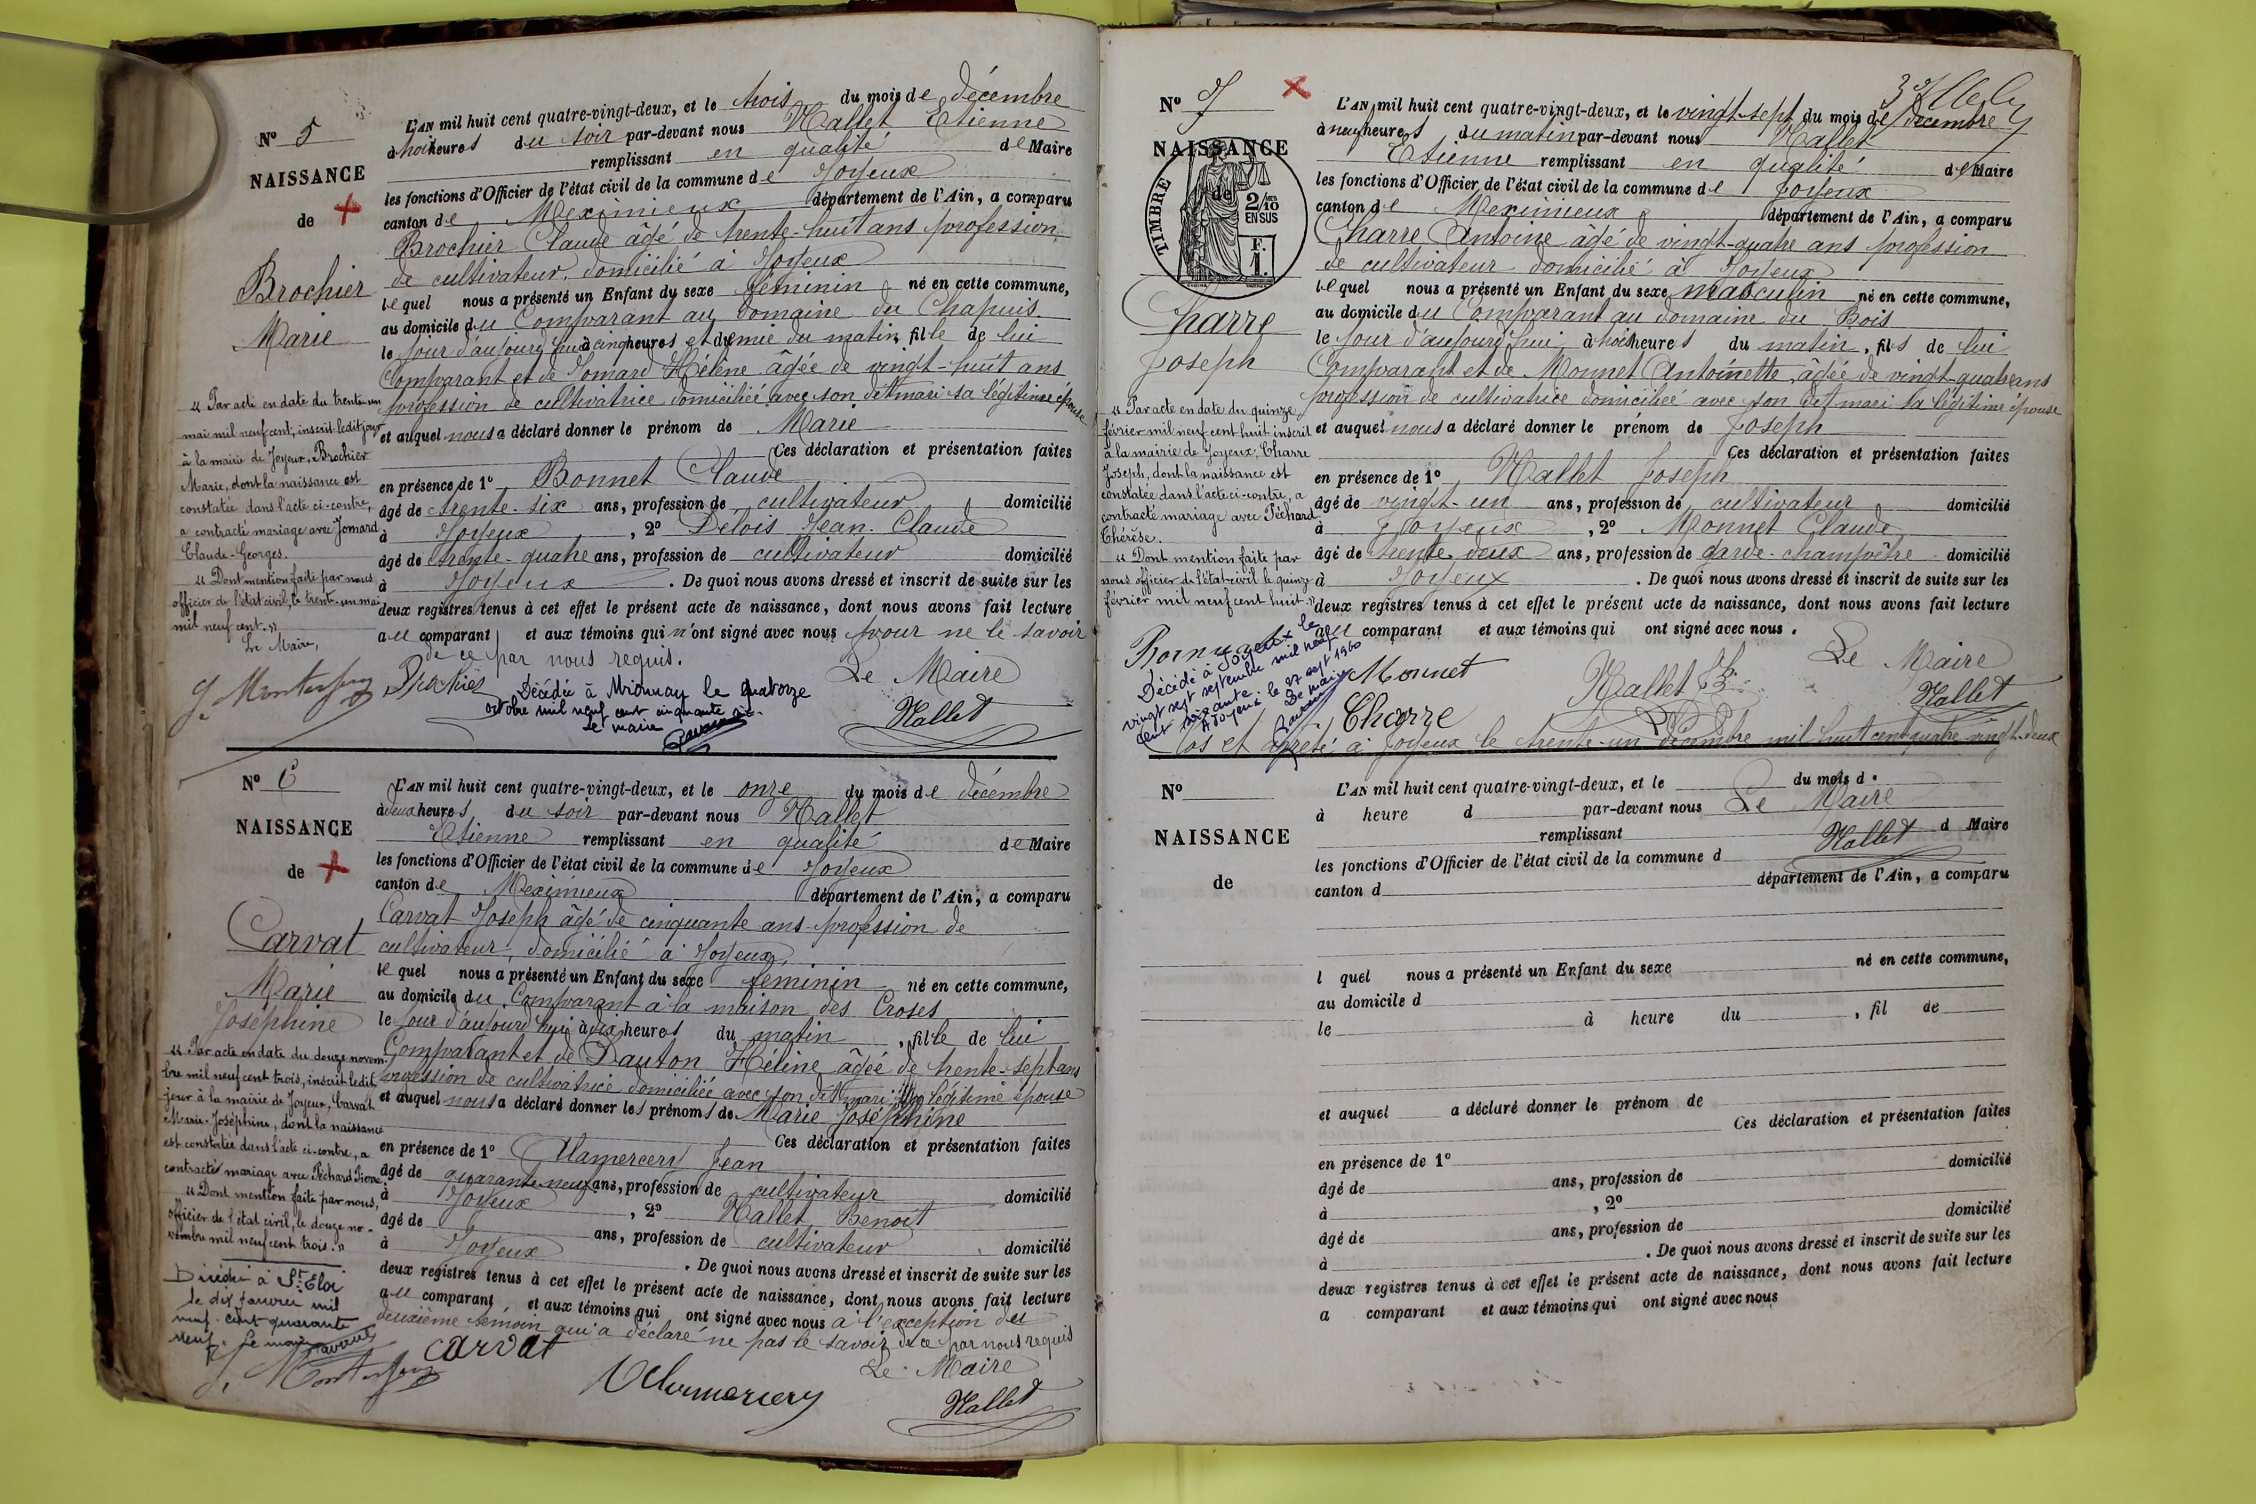 N° 5
NAISSANCE
de
Brochier
Marie
L'AN mil huit cent quatre-vingt-deux, et le trois du mois de décembre
à trois heures du soir par-devant nous Hallet Etienne
remplissant en qualité de Maire
les fonctions d'Officier de l'état civil de la commune de Joyeux
canton de Meximieux département de l'Ain, a comparu
Brochier Claude âgé de trente-huit ans profession
de cultivateur, domicilié à Joyeux
lequel nous a présenté un Enfant du sexe féminin né en cette commune,
au domicile du Comparant au domaine du Chapuis
le jour d'aujourd'hui à cinq heures et demie du matin, fille de lui
Comparant et de Jomard Hélène âgée de vingt-huit ans
profession de cultivatrice domiciliée avec son dit mari sa légitime épouse
et auquel nous a déclaré donner le prénom de Marie
Ces déclaration et présentation faites
en présence de 1° Bonnet Claude
âgé de trente-six ans, profession de cultivateur domicilié
à Joyeux, 2° Delois Jean-Claude
âgé de trente-quatre ans, profession de cultivateur domicilié
à Joyeux. De quoi nous avons dressé et inscrit de suite sur les
deux registres tenus à cet effet le présent acte de naissance, dont nous avons fait lecture
au comparant et aux témoins qui n'ont signé avec nous pour ne le savoir
de ce par nous requis.
Brochier Le Maire
Hallet
« Par acte en date du trente-un
mai mil neuf cent, inscrit ledit jour
à la mairie de Joyeux, Brochier
Marie, dont la naissance est
constatée dans l'acte ci-contre,
a contracté mariage avec Jomard
Claude-Georges.
« Dont mention faite par nous
officier de l'état civil, le trente-un mai
mil neuf cent. »
Le Maire,
Décédée à Mionnay le quatorze
octobre mil neuf cent cinquante six.
Le maire
N° 6
NAISSANCE
de
Carvat
Marie
Joséphine
L'AN mil huit cent quatre-vingt-deux, et le onze du mois de décembre
à deux heures du soir par-devant nous Hallet
Etienne remplissant en qualité de Maire
les fonctions d'Officier de l'état civil de la commune de Joyeux
canton de Meximieux département de l'Ain, a comparu
Carvat Joseph âgé de cinquante ans profession de
cultivateur, domicilié à Joyeux,
lequel nous a présenté un Enfant du sexe féminin né en cette commune,
au domicile du Comparant à la maison des Croses
le jour d'aujourd'hui à dix heures du matin, fille de lui
Comparant et de Dauton Héline âgée de trente-sept ans
profession de cultivatrice domiciliée avec son dit mari sa légitime épouse
et auquel nous a déclaré donner les prénoms de Marie Joséphine
Ces déclaration et présentation faites
en présence de 1° Clamercery Jean
âgé de quarante-neuf ans, profession de cultivateur domicilié
à Joyeux, 2° Hallet Benoit
âgé de ans, profession de cultivateur domicilié
à Joyeux. De quoi nous avons dressé et inscrit de suite sur les
deux registres tenus à cet effet le présent acte de naissance, dont nous avons fait lecture
au comparant, et aux témoins qui ont signé avec nous à l'exception du
deuxième témoin qui a déclaré ne pas le savoir de ce par nous requis
carvat Le Maire
Hallet
« Par acte en date du douze novem-
bre mil neuf cent trois, inscrit ledit
jour à la mairie de Joyeux, Carvat
Marie-Joséphine, dont la naissance
est constatée dans l'acte ci-contre, a
contracté mariage avec Péchard Pierre.
« Dont mention faite par nous,
officier de l'état civil, le douze no-
vembre mil neuf cent trois. »
Décédée à St Eloi
le dix janvier mil
neuf cent quarante
neuf. Le maire
N° 7
NAISSANCE
de
TIMBRE
2/10
EN SUS
F.
1.
Charre
Joseph
L'AN mil huit cent quatre-vingt-deux, et le vingt-sept du mois de décembre
à neuf heures du matin par-devant nous Hallet
Etienne remplissant en qualité de Maire
les fonctions d'Officier de l'état civil de la commune de Joyeux
canton de Meximieux département de l'Ain, a comparu
Charre Antoine âgé de vingt-quatre ans profession
de cultivateur domicilié à Joyeux
lequel nous a présenté un Enfant du sexe masculin né en cette commune,
au domicile du Comparant au domaine du Bois
le jour d'aujourd'hui à trois heures du matin, fils de lui
Comparant et de Monnet Antoinette, âgée de vingt-quatre ans
profession de cultivatrice domiciliée avec son dit mari sa légitime épouse
et auquel nous a déclaré donner le prénom de Joseph
Ces déclaration et présentation faites
en présence de 1° Hallet Joseph
âgé de vingt-un ans, profession de cultivateur domicilié
à Joyeux, 2° Monnet Claude
âgé de trente-deux ans, profession de garde-champêtre domicilié
à Joyeux. De quoi nous avons dressé et inscrit de suite sur les
deux registres tenus à cet effet le présent acte de naissance, dont nous avons fait lecture
au comparant et aux témoins qui ont signé avec nous.
Monnet Hallet Le Maire
Charre Hallet
« Par acte en date du quinze
février mil neuf cent huit inscrit
à la mairie de Joyeux, Charre
Joseph, dont la naissance est
constatée dans l'acte ci-contre, a
contracté mariage avec Péchard
Thérèse.
« Dont mention faite par
nous officier de l'état-civil le quinze
février mil neuf cent huit. »
Décédé à Joyeux le
vingt sept septembre mil neuf
cent soixante.
A Joyeux le 27 sept 1960
Le maire
Clos et arrêté à Joyeux le trente-un décembre mil huit cent quatre vingt-deux
Le Maire
Hallet
N°
NAISSANCE
de
L'AN mil huit cent quatre-vingt-deux, et le du mois d
à heure d par-devant nous
remplissant d Maire
les fonctions d'Officier de l'état civil de la commune d
canton d département de l'Ain, a comparu
l quel nous a présenté un Enfant du sexe né en cette commune,
au domicile d
le à heure du , fil de
et auquel a déclaré donner le prénom de
Ces déclaration et présentation faites
en présence de 1°
âgé de ans, profession de domicilié
à , 2°
âgé de ans, profession de domicilié
à . De quoi nous avons dressé et inscrit de suite sur les
deux registres tenus à cet effet le présent acte de naissance, dont nous avons fait lecture
a comparant et aux témoins qui ont signé avec nous